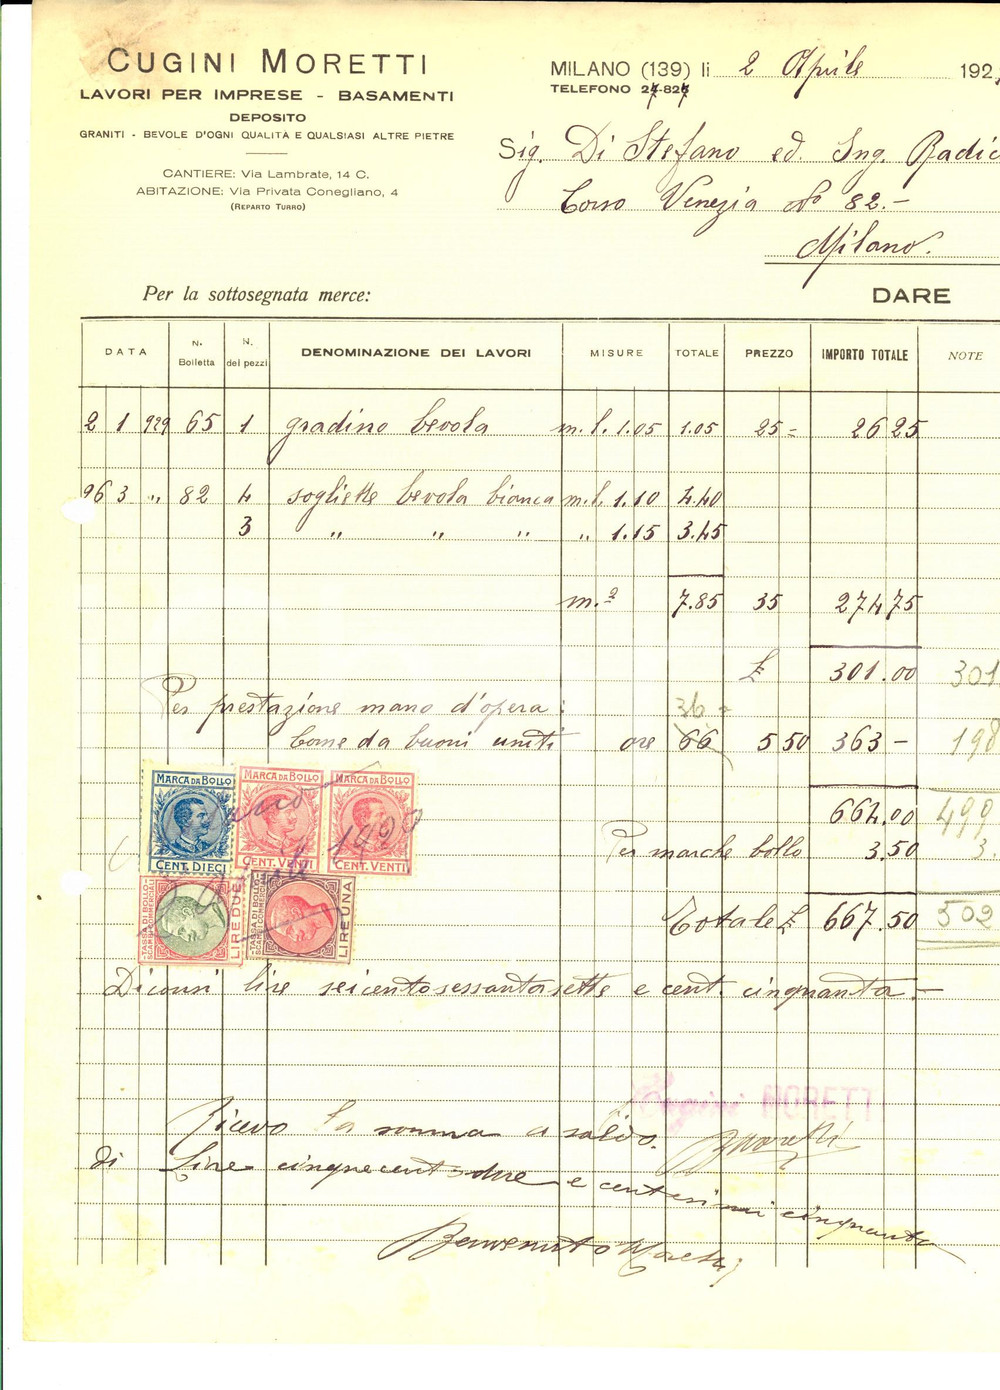 CUGINI MORETTI
LAVORI PER IMPRESE - BASAMENTI
DEPOSITO
GRANITI - BEVOLE D'OGNI QUALITÀ E QUALSIASI ALTRE PIETRE
CANTIERE: Via Lambrate, 14 C.
ABITAZIONE: Via Privata Conegliano, 4
(REPARTO TURRO)
MILANO (139) li 2 Aprile 192
TELEFONO
Sig. Di Stefano ed. Ing. Radic
Corso Venezia No 82.-
Milano.
Per la sottosegnata merce:
DARE
DATA N. Bolletta N. dei pezzi DENOMINAZIONE DEI LAVORI MISURE TOTALE PREZZO IMPORTO TOTALE NOTE
2 1 929 65 1 gradino bevola m.l. 1.05 1.05 25= 26 25
26 3 " 82 4 sogliette bevola bianca m.l. 1.10 4.40
3 " " " " 1.15 3.45
m.² 7.85 35 274 75
£ 301.00 301
Per prestazione mano d'opera: 36=
Come da buoni uniti ore 66 5 50 363- 198
664.00 499
Per marche bollo 3.50 3.
Totale £ 667.50 502
MARCA DA BOLLO MARCA DA BOLLO MARCA DA BOLLO
1929
CENT. DIECI CENT. VENTI CENT. VENTI
TASSA DI BOLLO SCAMBI COMMERCIALI LIRE DUE TASSA DI BOLLO SCAMBI COMMERCIALI LIRE UNA
Diconsi lire seicentosessantasette e cent. cinquanta.-
Cugini MORETTI
Ricevo la somma a saldo. Moretti
di Lire cinquecentodue e centesimi cinquanta
Benvenuto Moretti